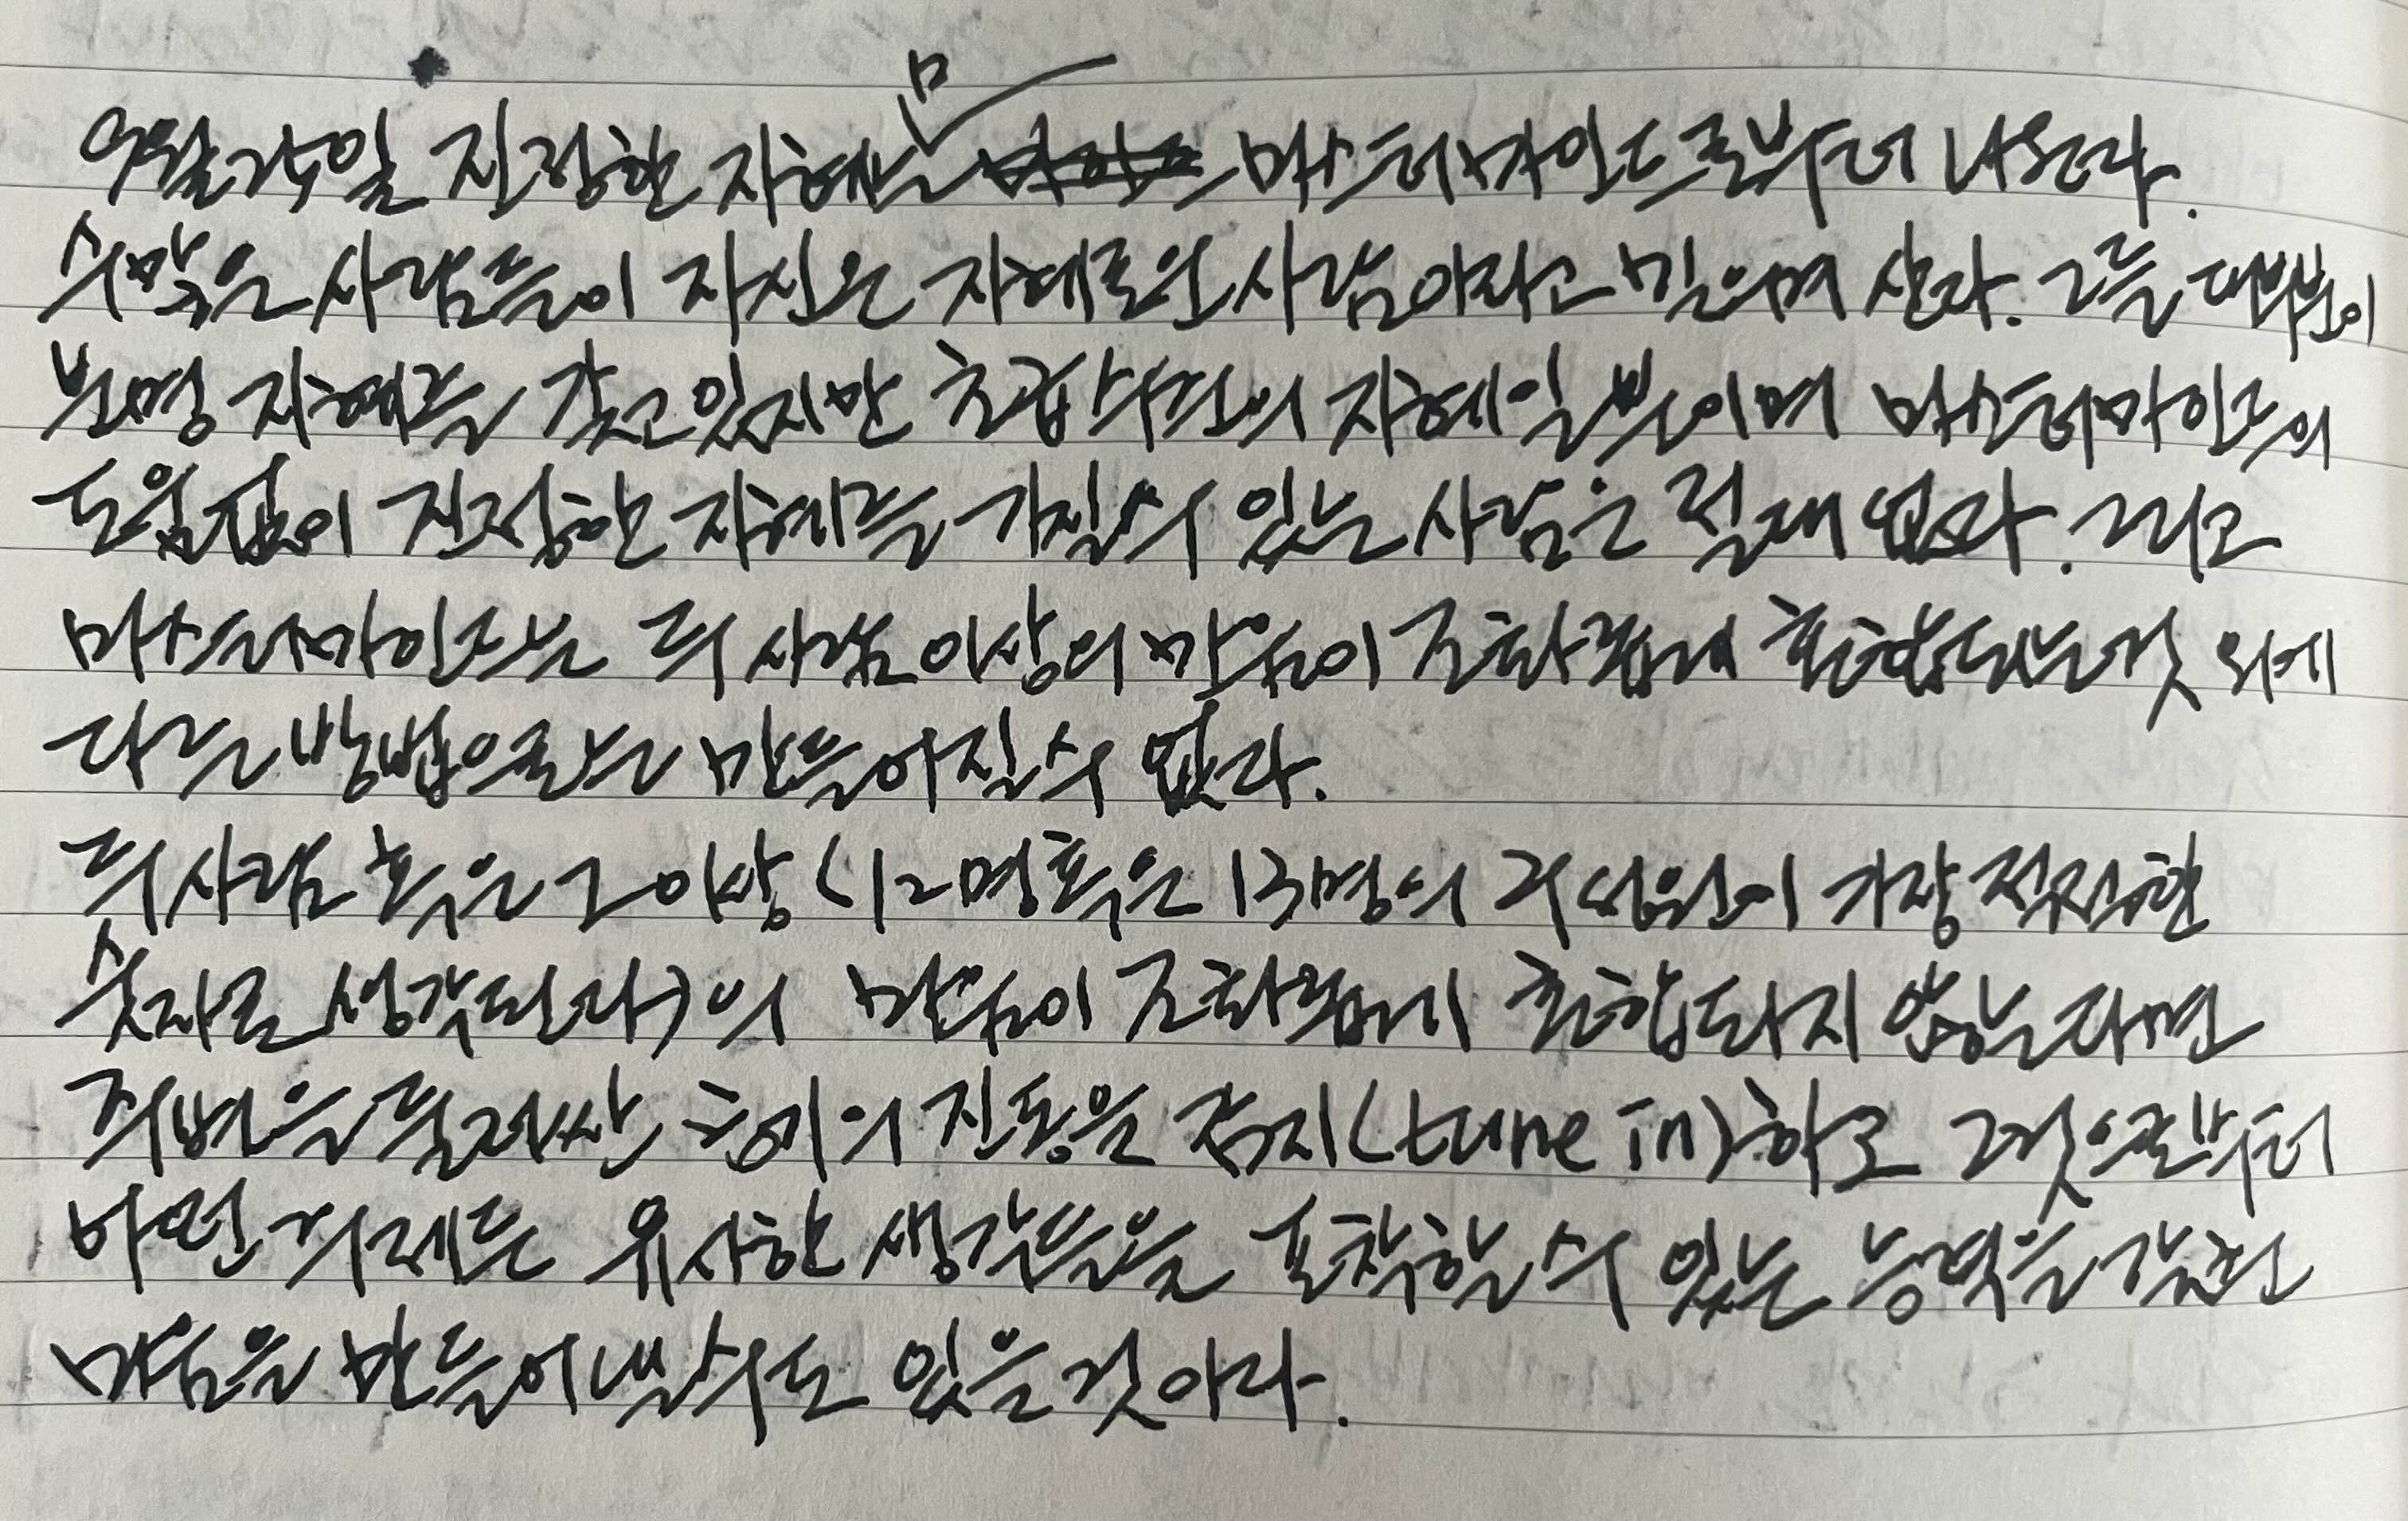 9월 29일 진정한 지혜는 마스터마인드로부터 나온다.
수많은 사람들이 자신은 지혜로운 사람이라고 믿으며 산다. 그들 대부분이
분명 지혜를 갖고 있지만 초급 수준의 지혜일 뿐이며 마스터마인드의
도움 없이 진정한 지혜를 가질 수 있는 사람은 절대 없다. 그리고
마스터마인드는 두 사람 이상의 마음이 조화롭게 혼합되는 것 외에
다른 방법으로는 만들어질 수 없다.
두 사람 혹은 그 이상 (12명 혹은 13명의 구성원이 가장 적절한
숫자로 생각된다)의 마음이 조화롭게 혼합되지 않는다면
주변을 둘러싼 의 진동을 감지(tune in)하고 그것으로부터
어떤 주제든 유사한 생각들을 포착할 수 있는 능력을 갖춘
마음을 만들어낼 수도 있을 것이다.